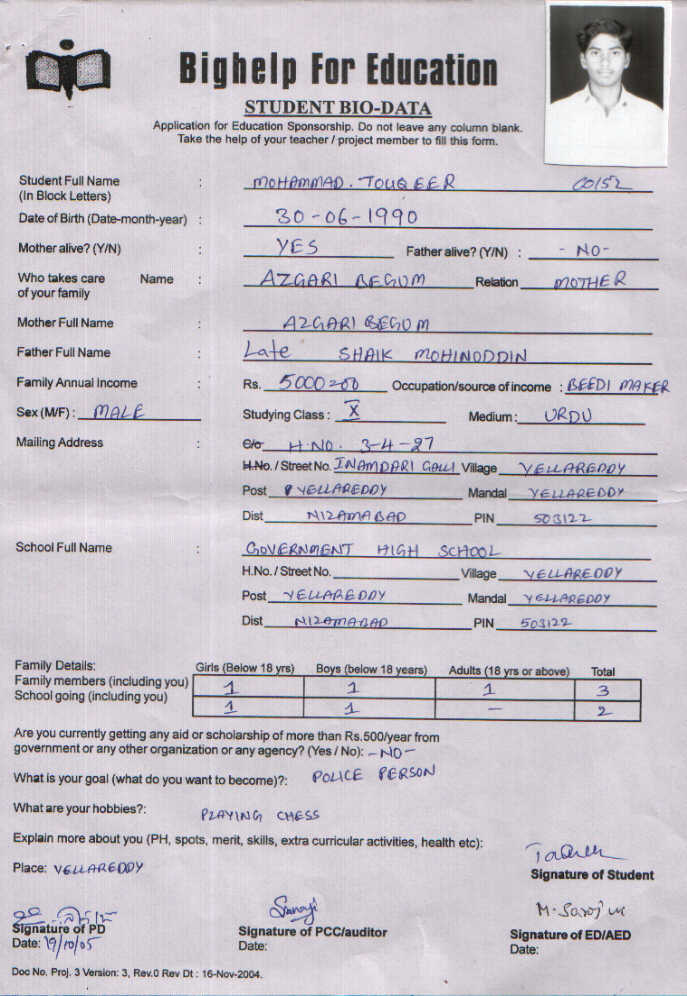 Bighelp For Education
STUDENT BIO-DATA
Application for Education Sponsorship. Do not leave any column blank.
Take the help of your teacher / project member to fill this form.
Student Full Name : MOHAMMAD. TOUQEER CO152
(In Block Letters)
Date of Birth (Date-month-year) : 30-06-1990
Mother alive? (Y/N) : YES Father alive? (Y/N) : - NO -
Who takes care Name : AZGARI BEGUM Relation MOTHER
of your family
Mother Full Name : AZGARI BEGUM
Father Full Name : Late SHAIK MOHINODDIN
Family Annual Income : Rs. 5000=00 Occupation/source of income : BEEDI MAKER
Sex (M/F) : MALE Studying Class : X Medium : URDU
Mailing Address : C/o H.NO. 3-4-27
H.No. / Street No. INAMDARI GALLI Village YELLAREDDY
Post YELLAREDDY Mandal YELLAREDDY
Dist NIZAMABAD PIN 503122
School Full Name : GOVERNMENT HIGH SCHOOL
H.No. / Street No. Village YELLAREDDY
Post YELLAREDDY Mandal YELLAREDDY
Dist NIZAMABAD PIN 503122
Family Details: Girls (Below 18 yrs) Boys (below 18 years) Adults (18 yrs or above) Total
Family members (including you) 1 1 1 3
School going (including you) 1 1 - 2
Are you currently getting any aid or scholarship of more than Rs.500/year from
government or any other organization or any agency? (Yes / No): - NO -
What is your goal (what do you want to become)?: POLICE PERSON
What are your hobbies?: PLAYING CHESS
Explain more about you (PH, spots, merit, skills, extra curricular activities, health etc):
Place: YELLAREDDY
Signature of Student
Signature of PD Signature of PCC/auditor Signature of ED/AED
Date: 19/10/05 Date: Date:
Doc No. Proj. 3 Version: 3, Rev.0 Rev Dt : 16-Nov-2004.